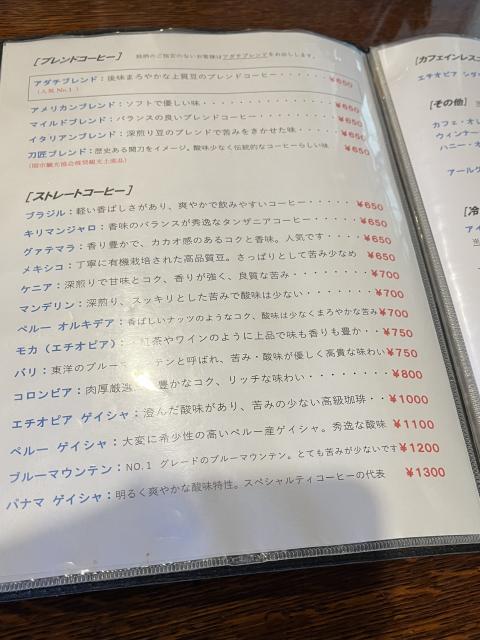 [ブレンドコーヒー] 銘柄のご指定のないお客様はアダチブレンドをお出しします。
アダチブレンド：後味まろやかな上質豆のブレンドコーヒー・・・・・・¥650
(人気No.1)
アメリカンブレンド：ソフトで優しい味・・・・・・・・・・・・・・・¥650
マイルドブレンド：バランスの良いブレンドコーヒー・・・・・・・・・¥650
イタリアンブレンド：深煎り豆のブレンドで苦みをきかせた味・・・・・¥650
刀匠ブレンド：歴史ある関刀をイメージ。酸味少なく伝統的なコーヒーらしい味 ¥650
(関市観光協会推奨観光土産品)
[ストレートコーヒー]
ブラジル：軽い香ばしさがあり、爽やかで飲みやすいコーヒー・・・・・¥650
キリマンジャロ：香味のバランスが秀逸なタンザニアコーヒー・・・・・¥650
グァテマラ：香り豊かで、カカオ感のあるコクと香味。人気です・・・・¥650
メキシコ：丁寧に有機栽培された高品質豆。さっぱりとして苦み少なめ ¥650
ケニア：深煎りで甘味とコク、香りが強く、良質な苦み・・・・・・・・¥700
マンデリン：深煎り、スッキリとした苦みで酸味は少ない・・・・・・・¥700
ペルー オルキデア：香ばしいナッツのようなコク、酸味は少なくまろやかな苦み ¥700
モカ（エチオピア）：紅茶やワインのように上品で味も香りも豊か・・¥750
バリ：東洋のブルーマウンテンと呼ばれ、苦み・酸味が優しく高貴な味わい ¥750
コロンビア：肉厚厳選 豊かなコク、リッチな味わい・・・・・・・・¥800
エチオピア ゲイシャ：澄んだ酸味があり、苦みの少ない高級珈琲・・¥1000
ペルー ゲイシャ：大変に希少性の高いペルー産ゲイシャ。秀逸な酸味 ¥1100
ブルーマウンテン：NO.1 グレードのブルーマウンテン。とても苦みが少ないです ¥1200
パナマ ゲイシャ：明るく爽やかな酸味特性。スペシャルティコーヒーの代表 ¥1300
[カフェインレスコ
エチオピア シダ
[その他]
カフェ・オレ
ウィンナー
ハニー・オ
アールグ
[冷
アイ